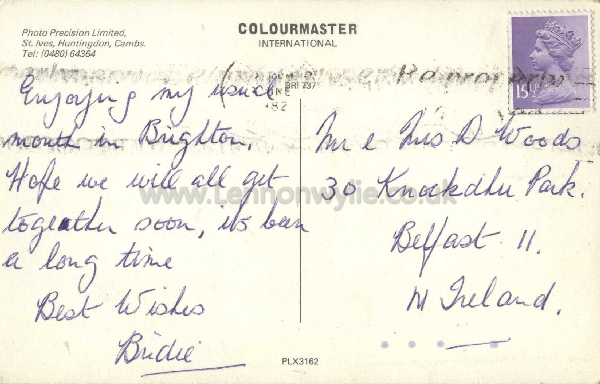 Photo Precision Limited,
St. Ives, Huntingdon, Cambs.
Tel: (0480) 64364
COLOURMASTER
INTERNATIONAL
15½P
BRI 737
NE
'82
Enjoying my usual
month in Brighton.
Hope we will all get
together soon, its been
a long time
Best Wishes
Bridie
Mr & Mrs D Woods
30 Knockdhu Park.
Belfast 11.
N Ireland.
www.Lennonwylie.co.uk
PLX3162